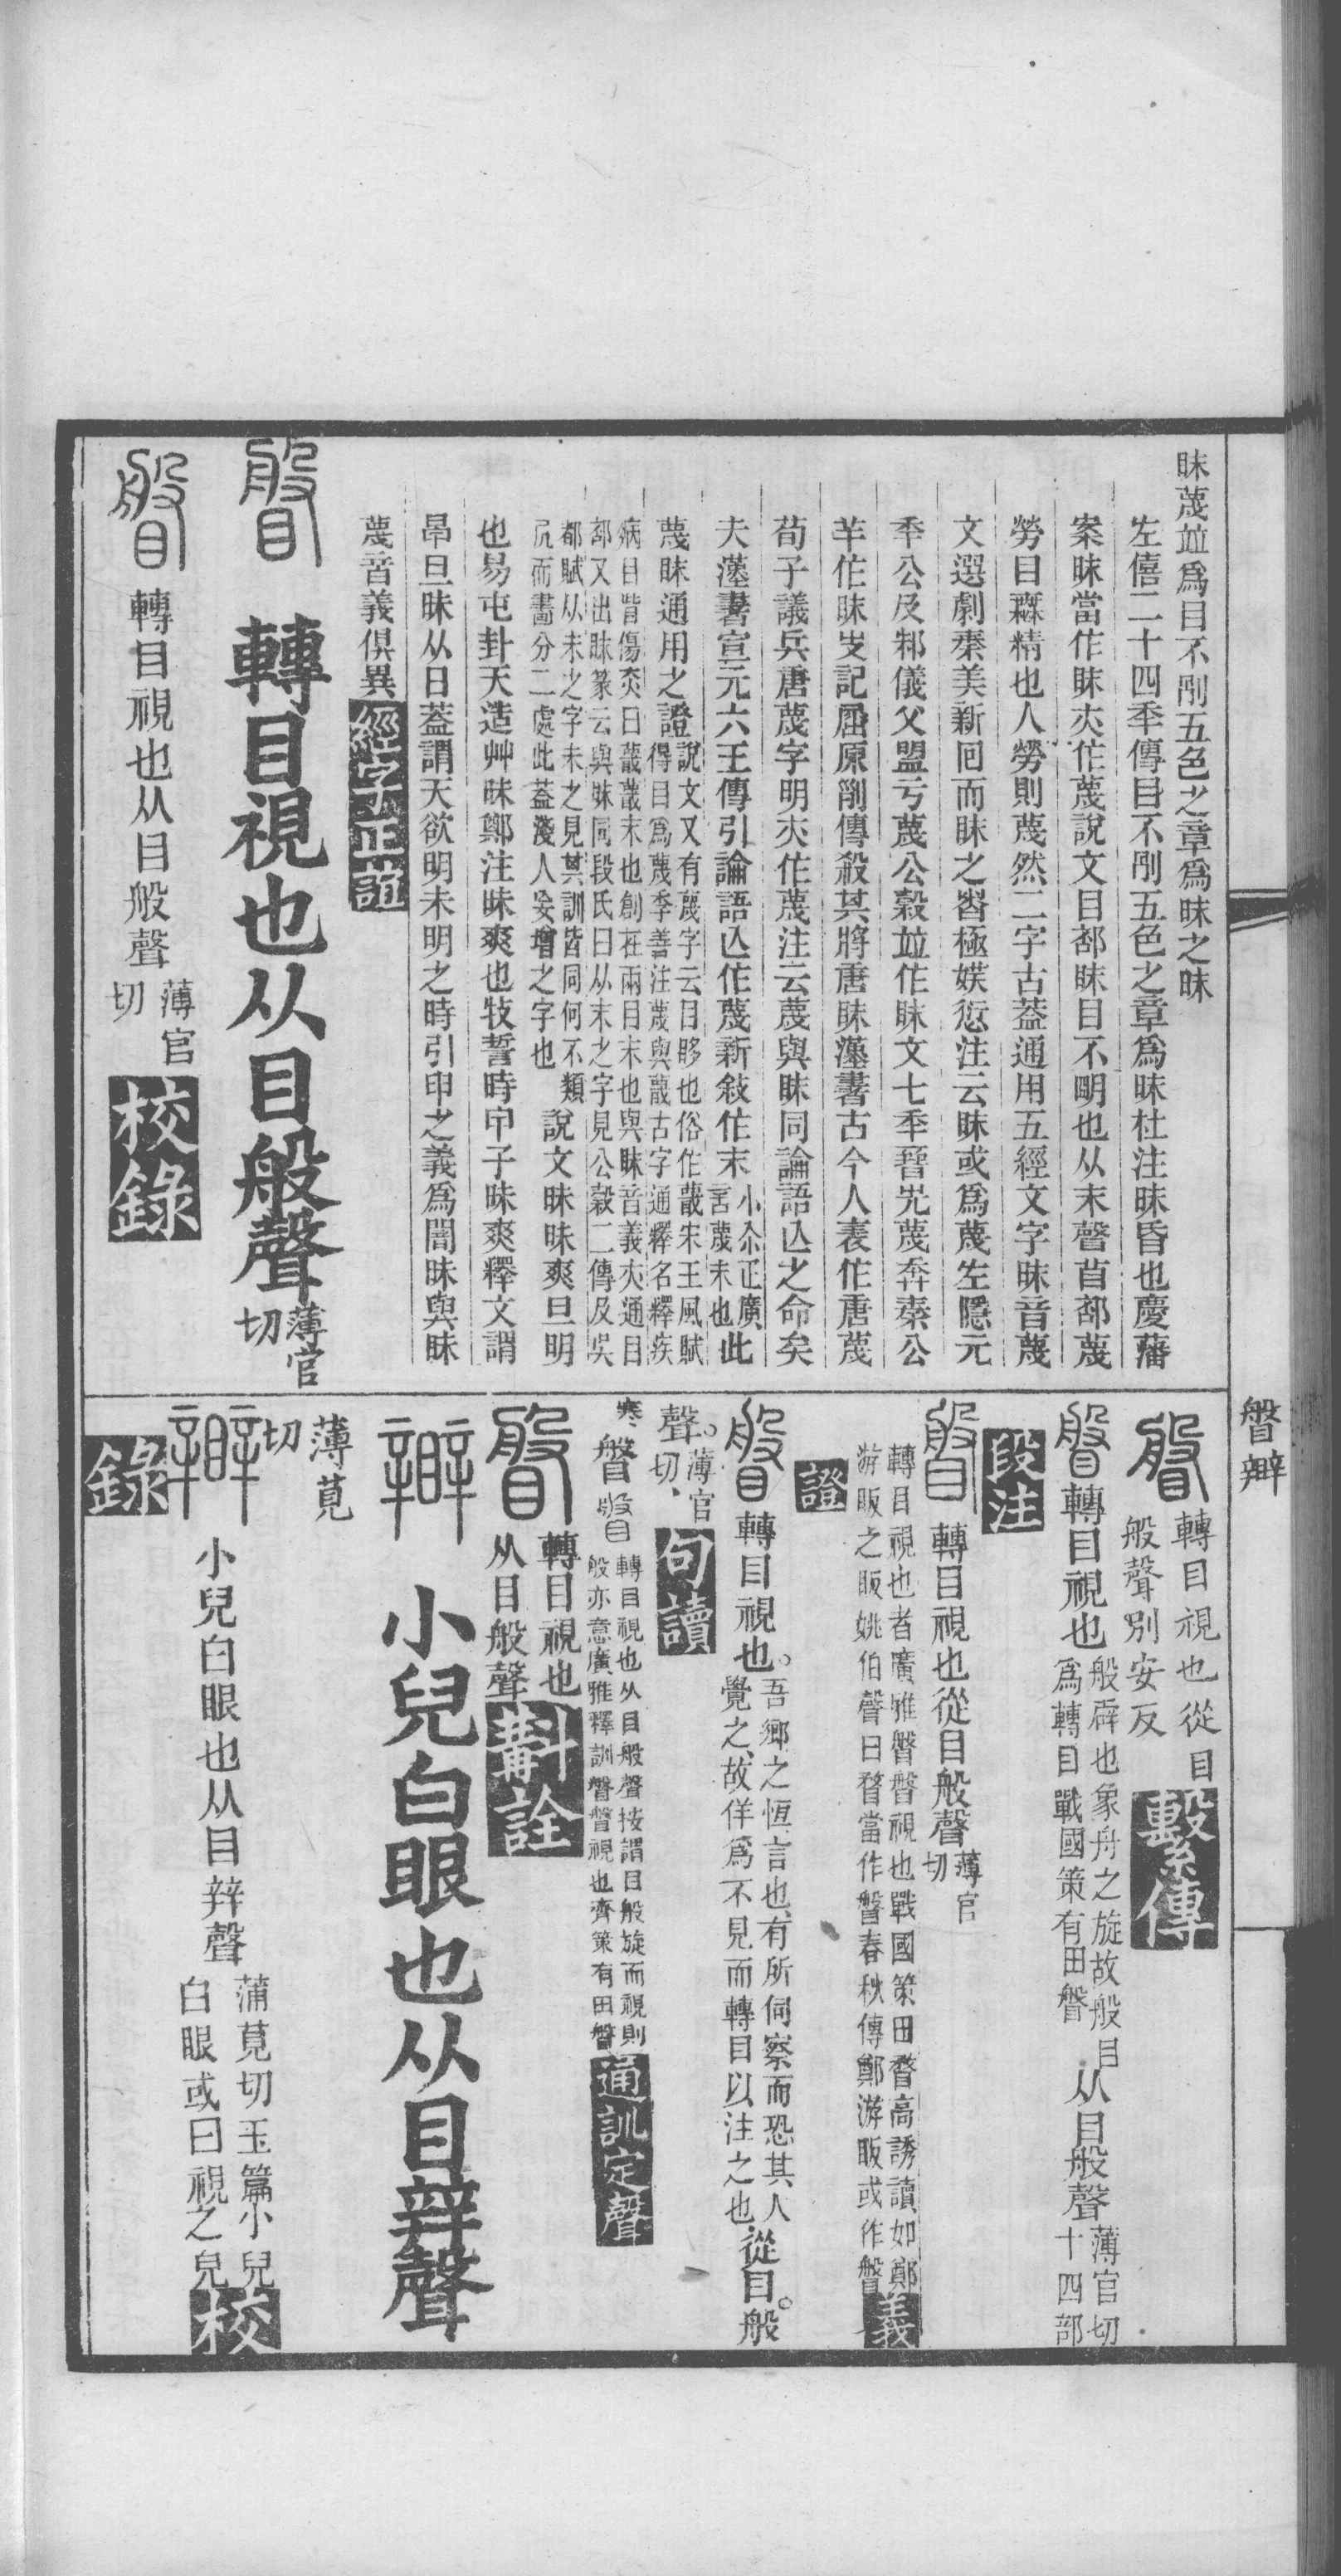 眜蔑竝爲目不刖五色之章爲昧之眜
左僖二十四秊傳目不刖五色之章爲昧杜注昧昏也慶藩
案昧當作眜夾作蔑說文目部眜目不朙也从末聲苜部蔑
勞目無精也人勞則蔑然二字古葢通用五經文字眜音蔑
文選劇秦美新回而眜之朁極娱愆注云眜或爲蔑左隱元
秊公及邾儀父盟亏蔑公穀竝作眜文七秊晉先蔑奔秦公
羊作眜史記屈原𠟭傳殺其將唐眜漢書古今人表作唐蔑
荀子議兵唐蔑字明夾作蔑注云蔑與眜同論語亾之命矣
夫漢書宣元六王傳引論語亾作蔑新敍作末小尒正廣言蔑末也此
蔑眜通用之證說文又有䁾字云目眵也俗作䁾宋玉風賦得目爲蔑李善注蔑與䁾古字通釋名釋疾
病目眥傷赤曰䁾䁾末也創在兩目末也與眜音義夾通目部又出眛篆云與眜同段氏曰从末之字見公穀二傳及吳
都賦从未之字未之見其訓皆同何不類凥而畫分二處此葢淺人妄增之字也說文昧昧爽旦明
也易屯卦天造艸昧鄭注昧爽也牧誓時甲子昧爽釋文謂
早旦昧从日葢謂天欲明未明之時引申之義爲闇昧與眜
蔑音義俱異經字攷正誼
瞥 轉目視也从目般聲薄官切
瞥 轉目視也从目般聲薄官切校錄
瞥辧
瞥 轉目視也從目般聲別安反繫傳
瞥 轉目視也般辟也象舟之旋故般目爲轉目戰國策有田瞥从目般聲薄官切十四部
段注
瞥 轉目視也從目般聲薄官切
轉目視也者廣雅瞥瞥視也戰國策田瞀高誘讀如鄭游眅之眅姚伯聲曰瞀當作瞥春秋傳鄭游眅或作瞥義
證
瞥 轉目視也。吾鄉之恆言也、有所伺察而恐其人覺之、故佯爲不見而轉目以注之也、從目。般
聲。薄官切、句讀
寒、瞥 轉目視也从目般聲按謂目般旋而視則般亦意廣雅釋訓瞥瞥視也齊策有田瞥通訓定聲
瞥 轉目視也从目般聲斠詮
辧 小兒白眼也从目辡聲
薄莧切
辧 小兒白眼也从目辡聲蒲莧切玉篇小兒白眼或曰視之皃校
錄